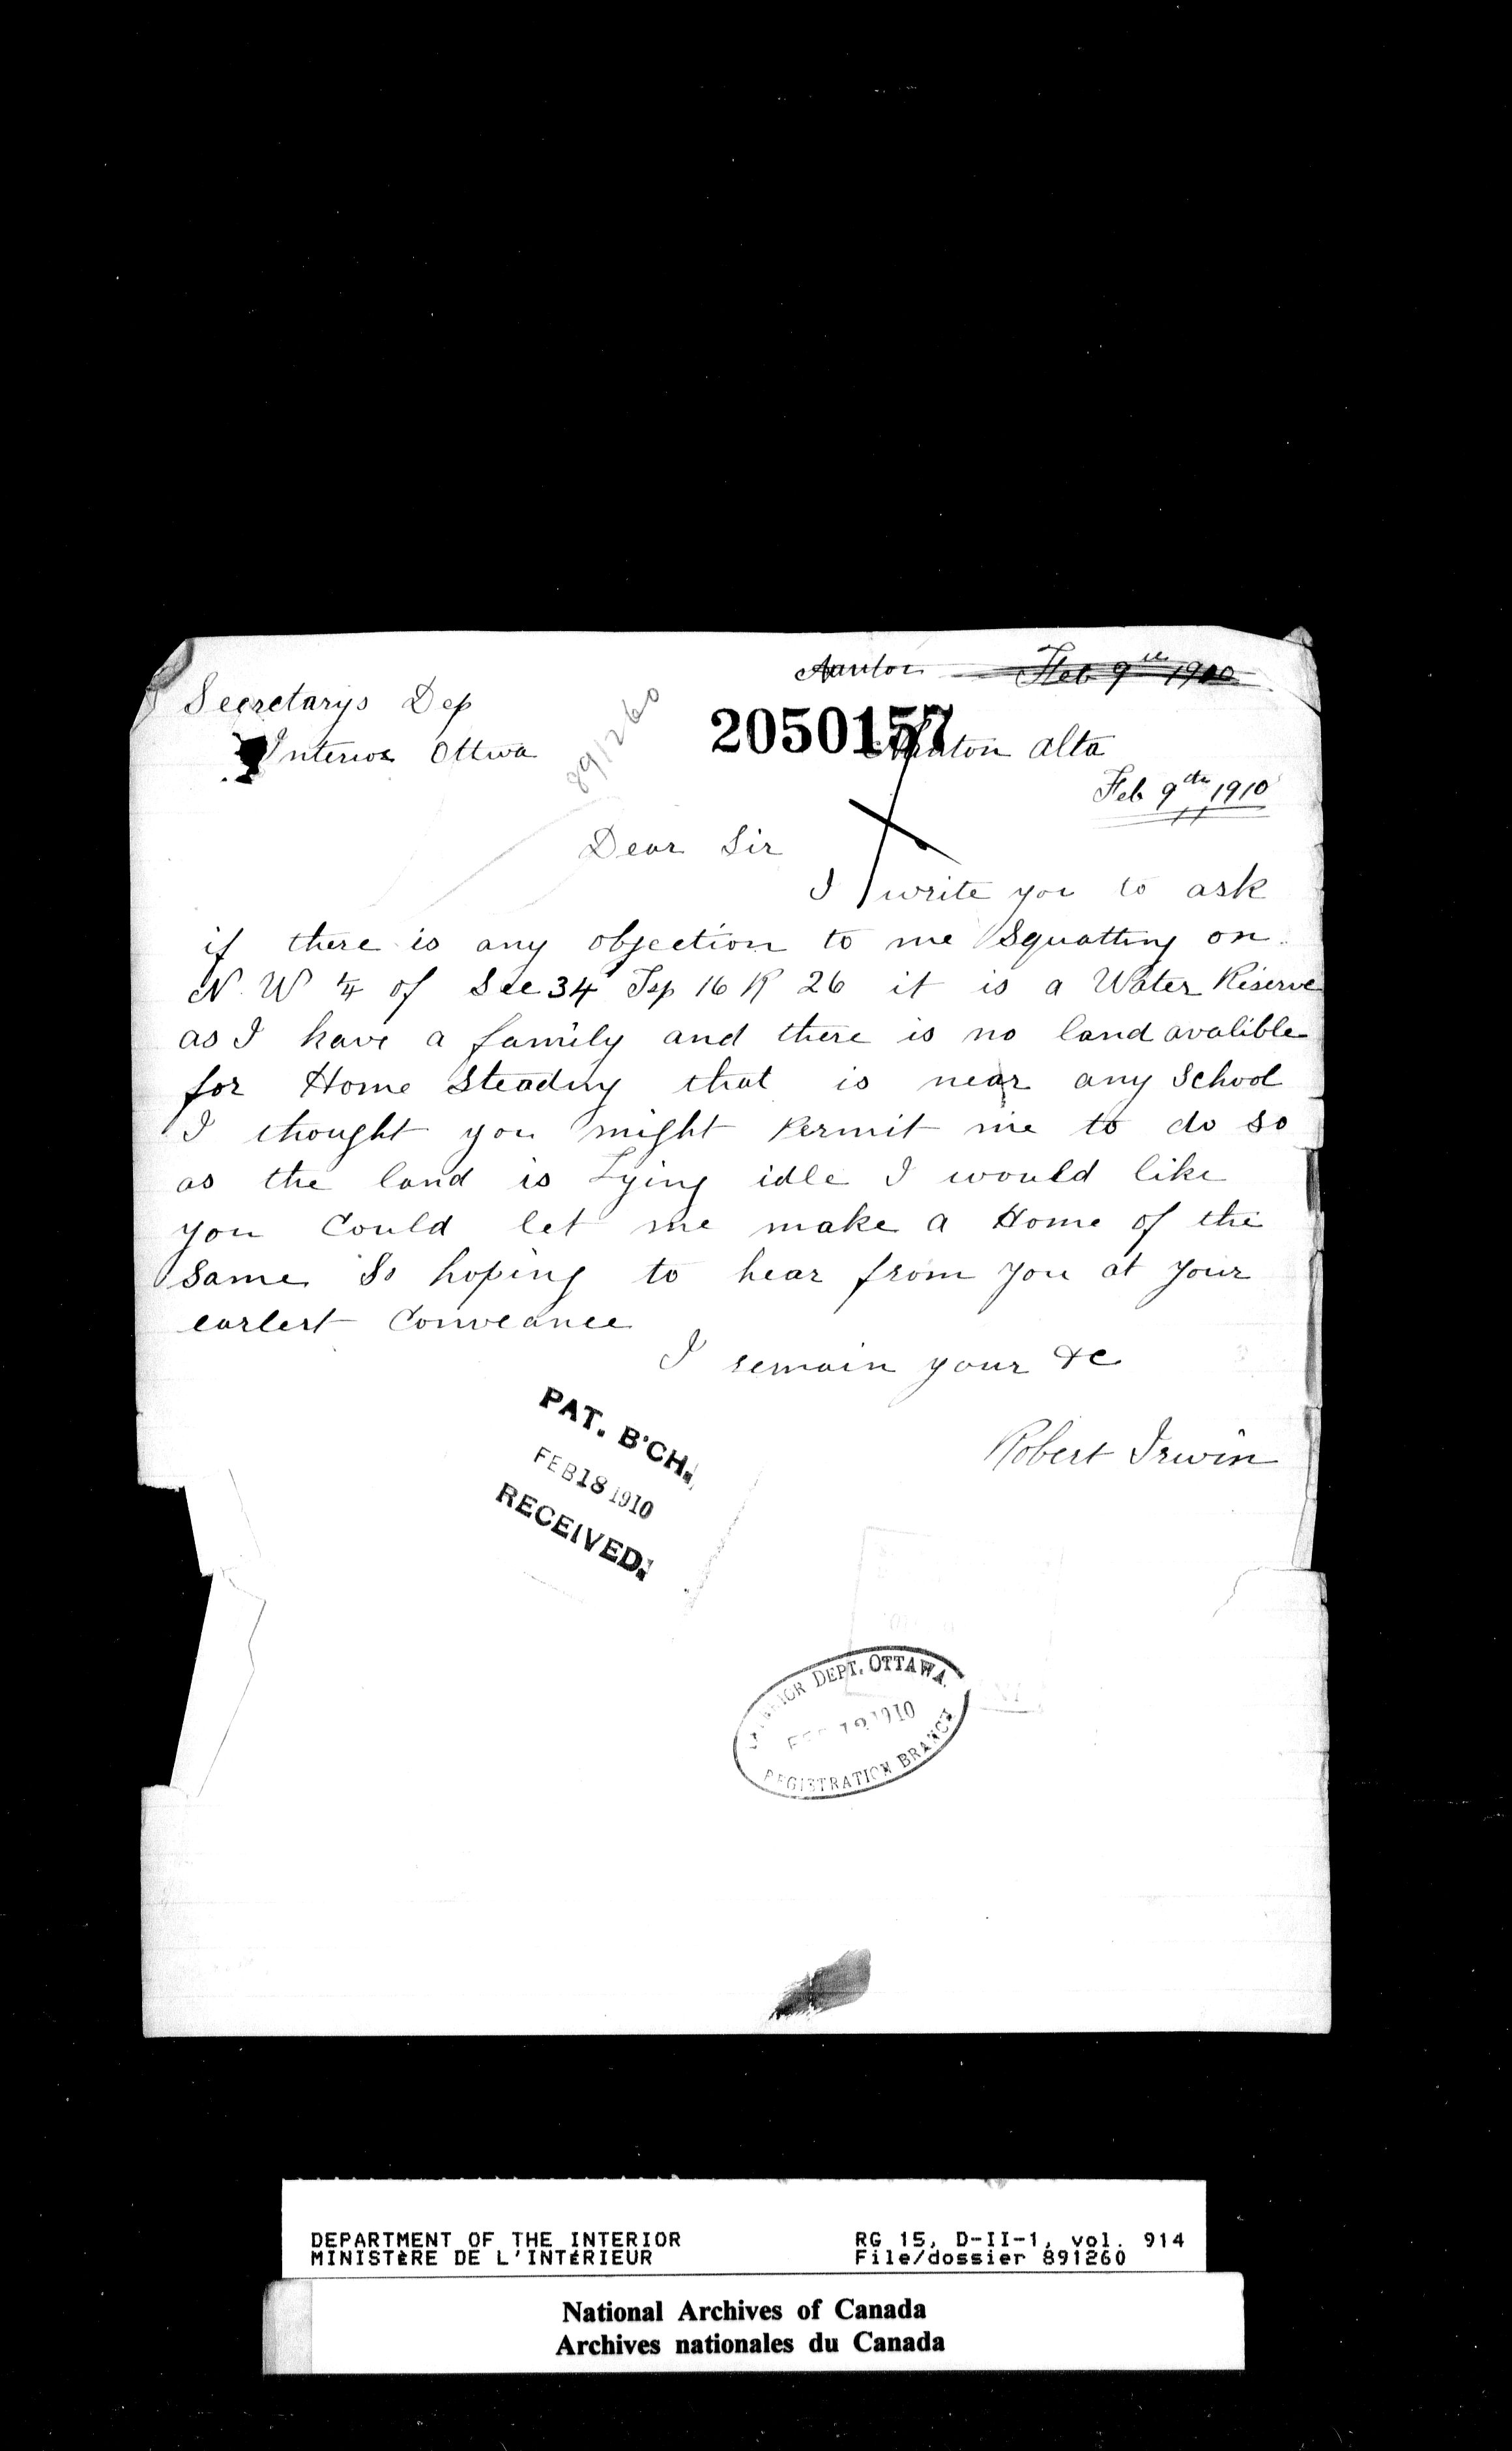 Nanton Feb 9th 1910
Secretarys Dep
Interior Ottwa
891260
2050157
Nanton Alta
Feb 9th 1910
Dear Sir
I write you to ask
if there is any objection to me Squatting on
N. W 1/4 of Sec 34 Tsp 16 R 26 it is a Water Reserve
as I have a family and there is no land avalible
for Home Steading that is near any School
I thought you might Permit me to do so
as the land is Lying idle I would like
you Could let me make a Home of the
Same So hoping to hear from you at your
earlest Conveance
I remain your &c
Robert Irwin
PAT. B'CH.
FEB 18 1910
RECEIVED.
INTERIOR DEPT. OTTAWA.
1910
REGISTRATION BRANCH
DEPARTMENT OF THE INTERIOR RG 15, D-II-1, vol. 914
MINISTÈRE DE L'INTÉRIEUR File/dossier 891260
National Archives of Canada
Archives nationales du Canada